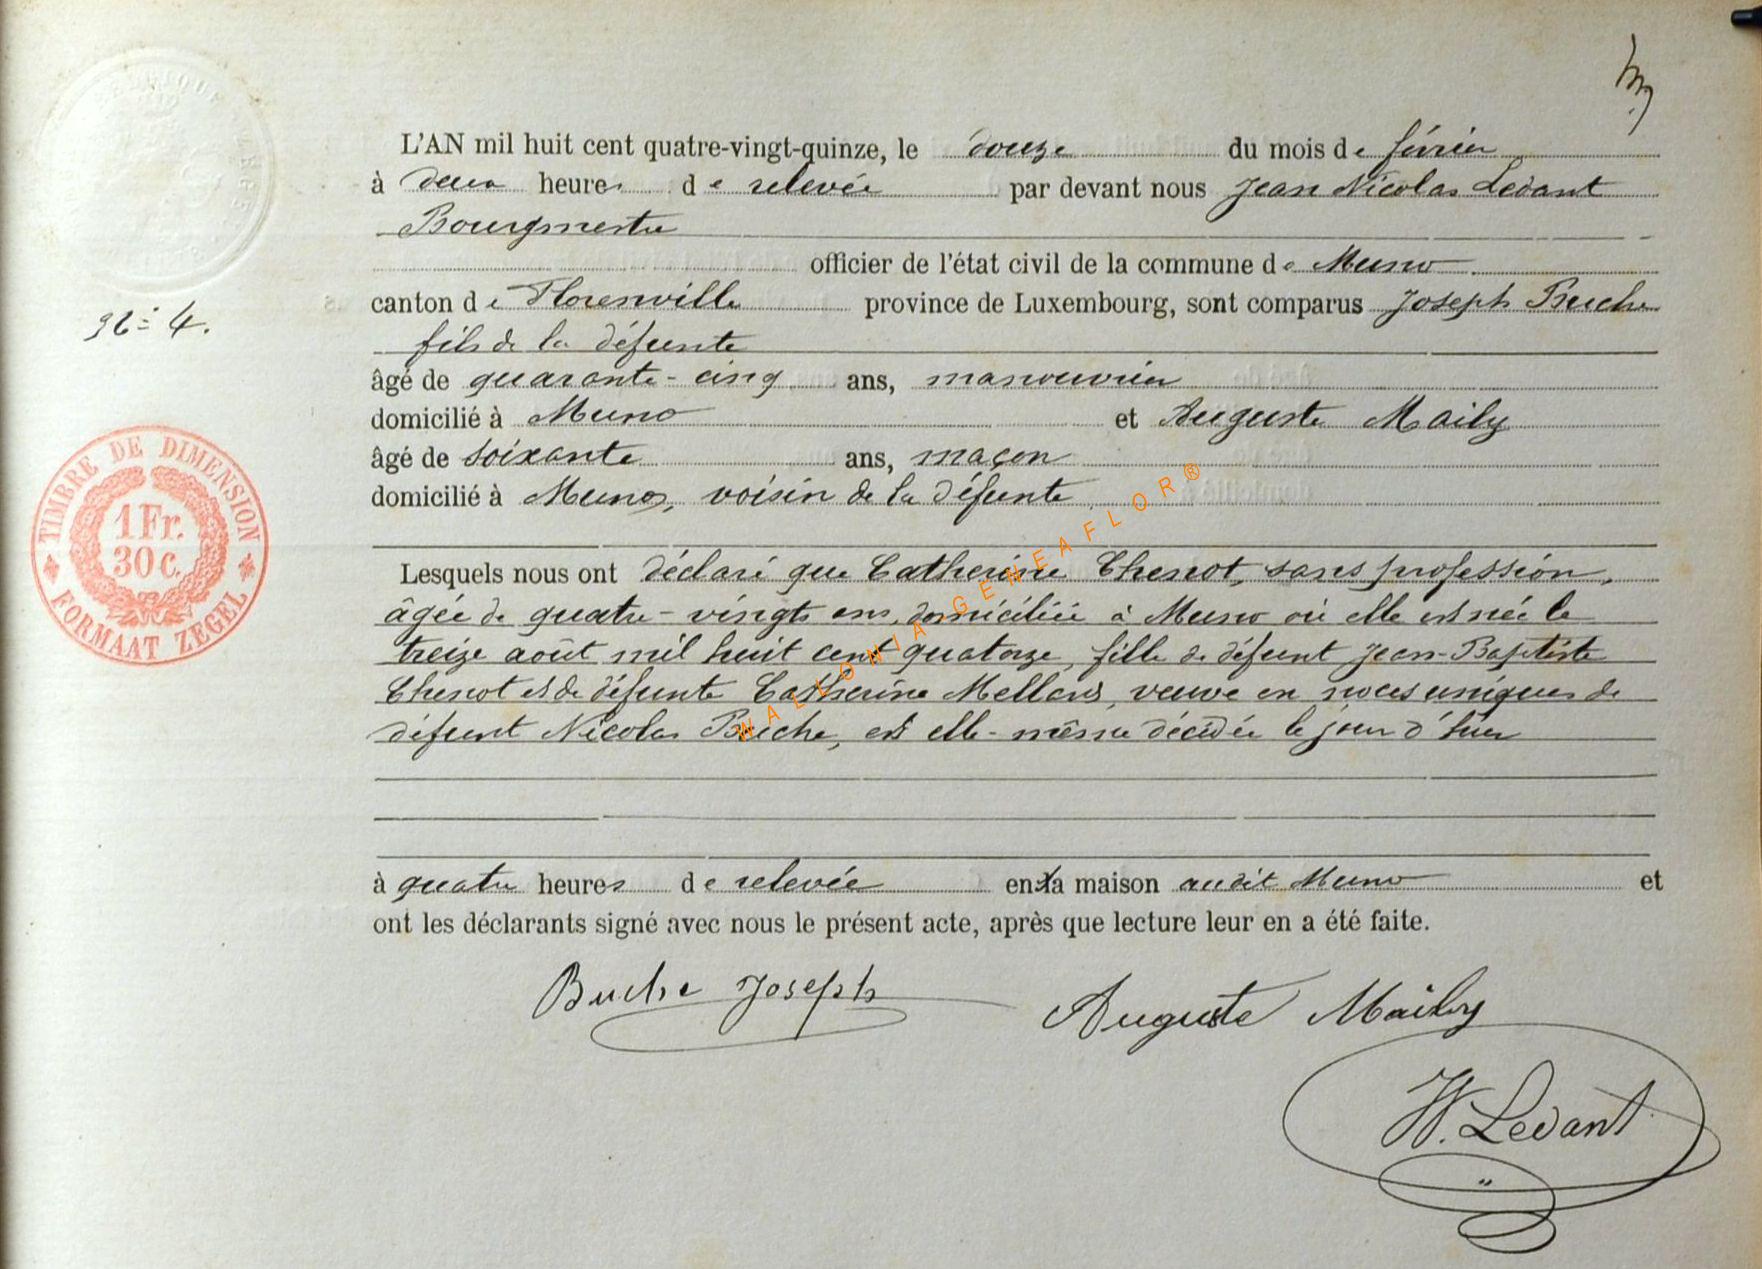 L'AN mil huit cent quatre-vingt-quinze, le douze du mois de février
à deux heures de relevée par devant nous Jean Nicolas Ledant
Bourgmestre
officier de l'état civil de la commune de Muno
canton de Florenville province de Luxembourg, sont comparus Joseph Buche
fils de la défunte
âgé de quarante-cinq ans, manouvrier
domicilié à Muno et Auguste Maily
âgé de soixante ans, maçon
domicilié à Muno, voisin de la défunte
Lesquels nous ont déclaré que Catherine Thenot, sans profession,
âgée de quatre-vingts ans, domiciliée à Muno où elle est née le
treize août mil huit cent quatorze, fille de défunt Jean-Baptiste
Thenot et de défunte Catherine Mellons, veuve en noces uniques de
défunt Nicolas Buche, est elle-même décédée le jour d'hier
à quatre heures de relevée en la maison audit Muno et
ont les déclarants signé avec nous le présent acte, après que lecture leur en a été faite.
Buche Joseph
Auguste Maily
N. Ledant
4.
TIMBRE DE DIMENSION
1 Fr.
30 c.
FORMAAT ZEGEL
WALLONIA-GENEAFLOR®